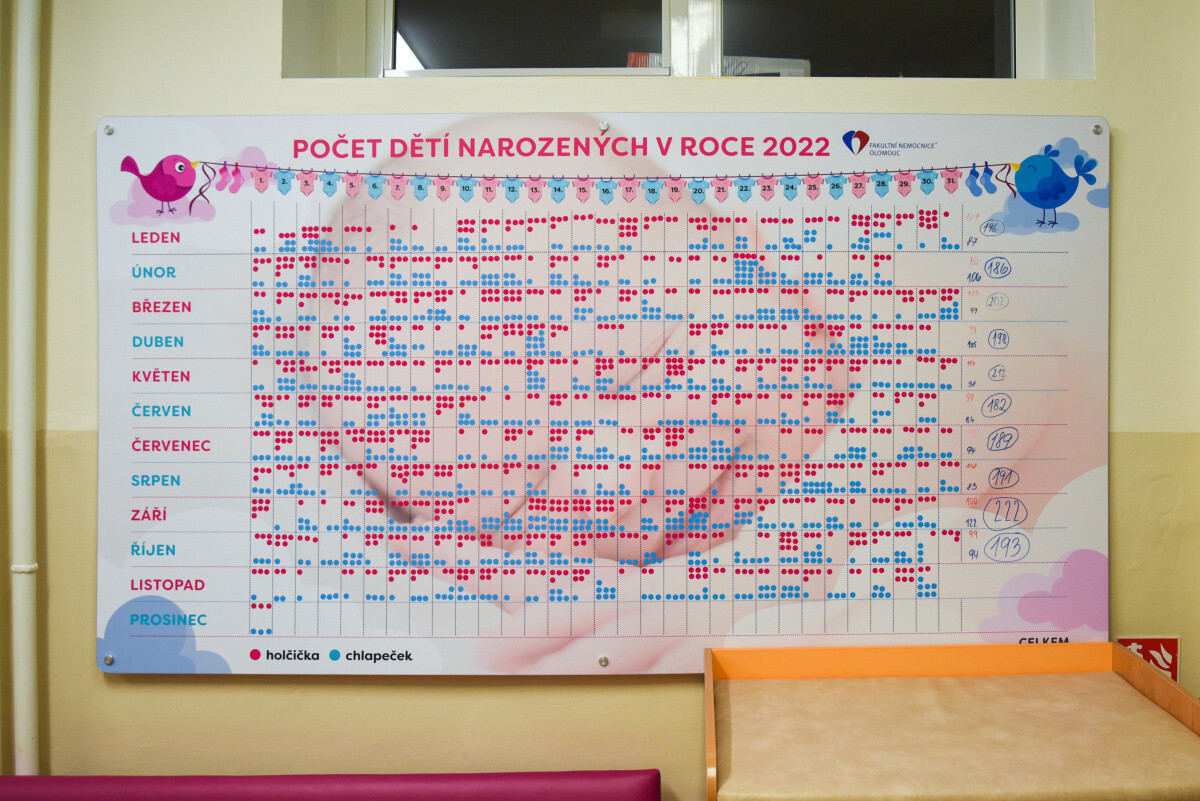 POČET DĚTÍ NAROZENÝCH V ROCE 2022
FAKULTNÍ NEMOCNICE
OLOMOUC
1. 2. 3. 4. 5. 6. 7. 8. 9. 10. 11. 12. 13. 14. 15. 16. 17. 18. 19. 20. 21. 22. 23. 24. 25. 26. 27. 28. 29. 30. 31.
LEDEN 87 196
ÚNOR 106 186
BŘEZEN 202
DUBEN 198
KVĚTEN 98 212
ČERVEN 98 84 182
ČERVENEC 94 189
SRPEN 108 83 191
ZÁŘÍ 100 122 222
ŘÍJEN 99 94 193
LISTOPAD
PROSINEC
holčička chlapeček
CELKEM